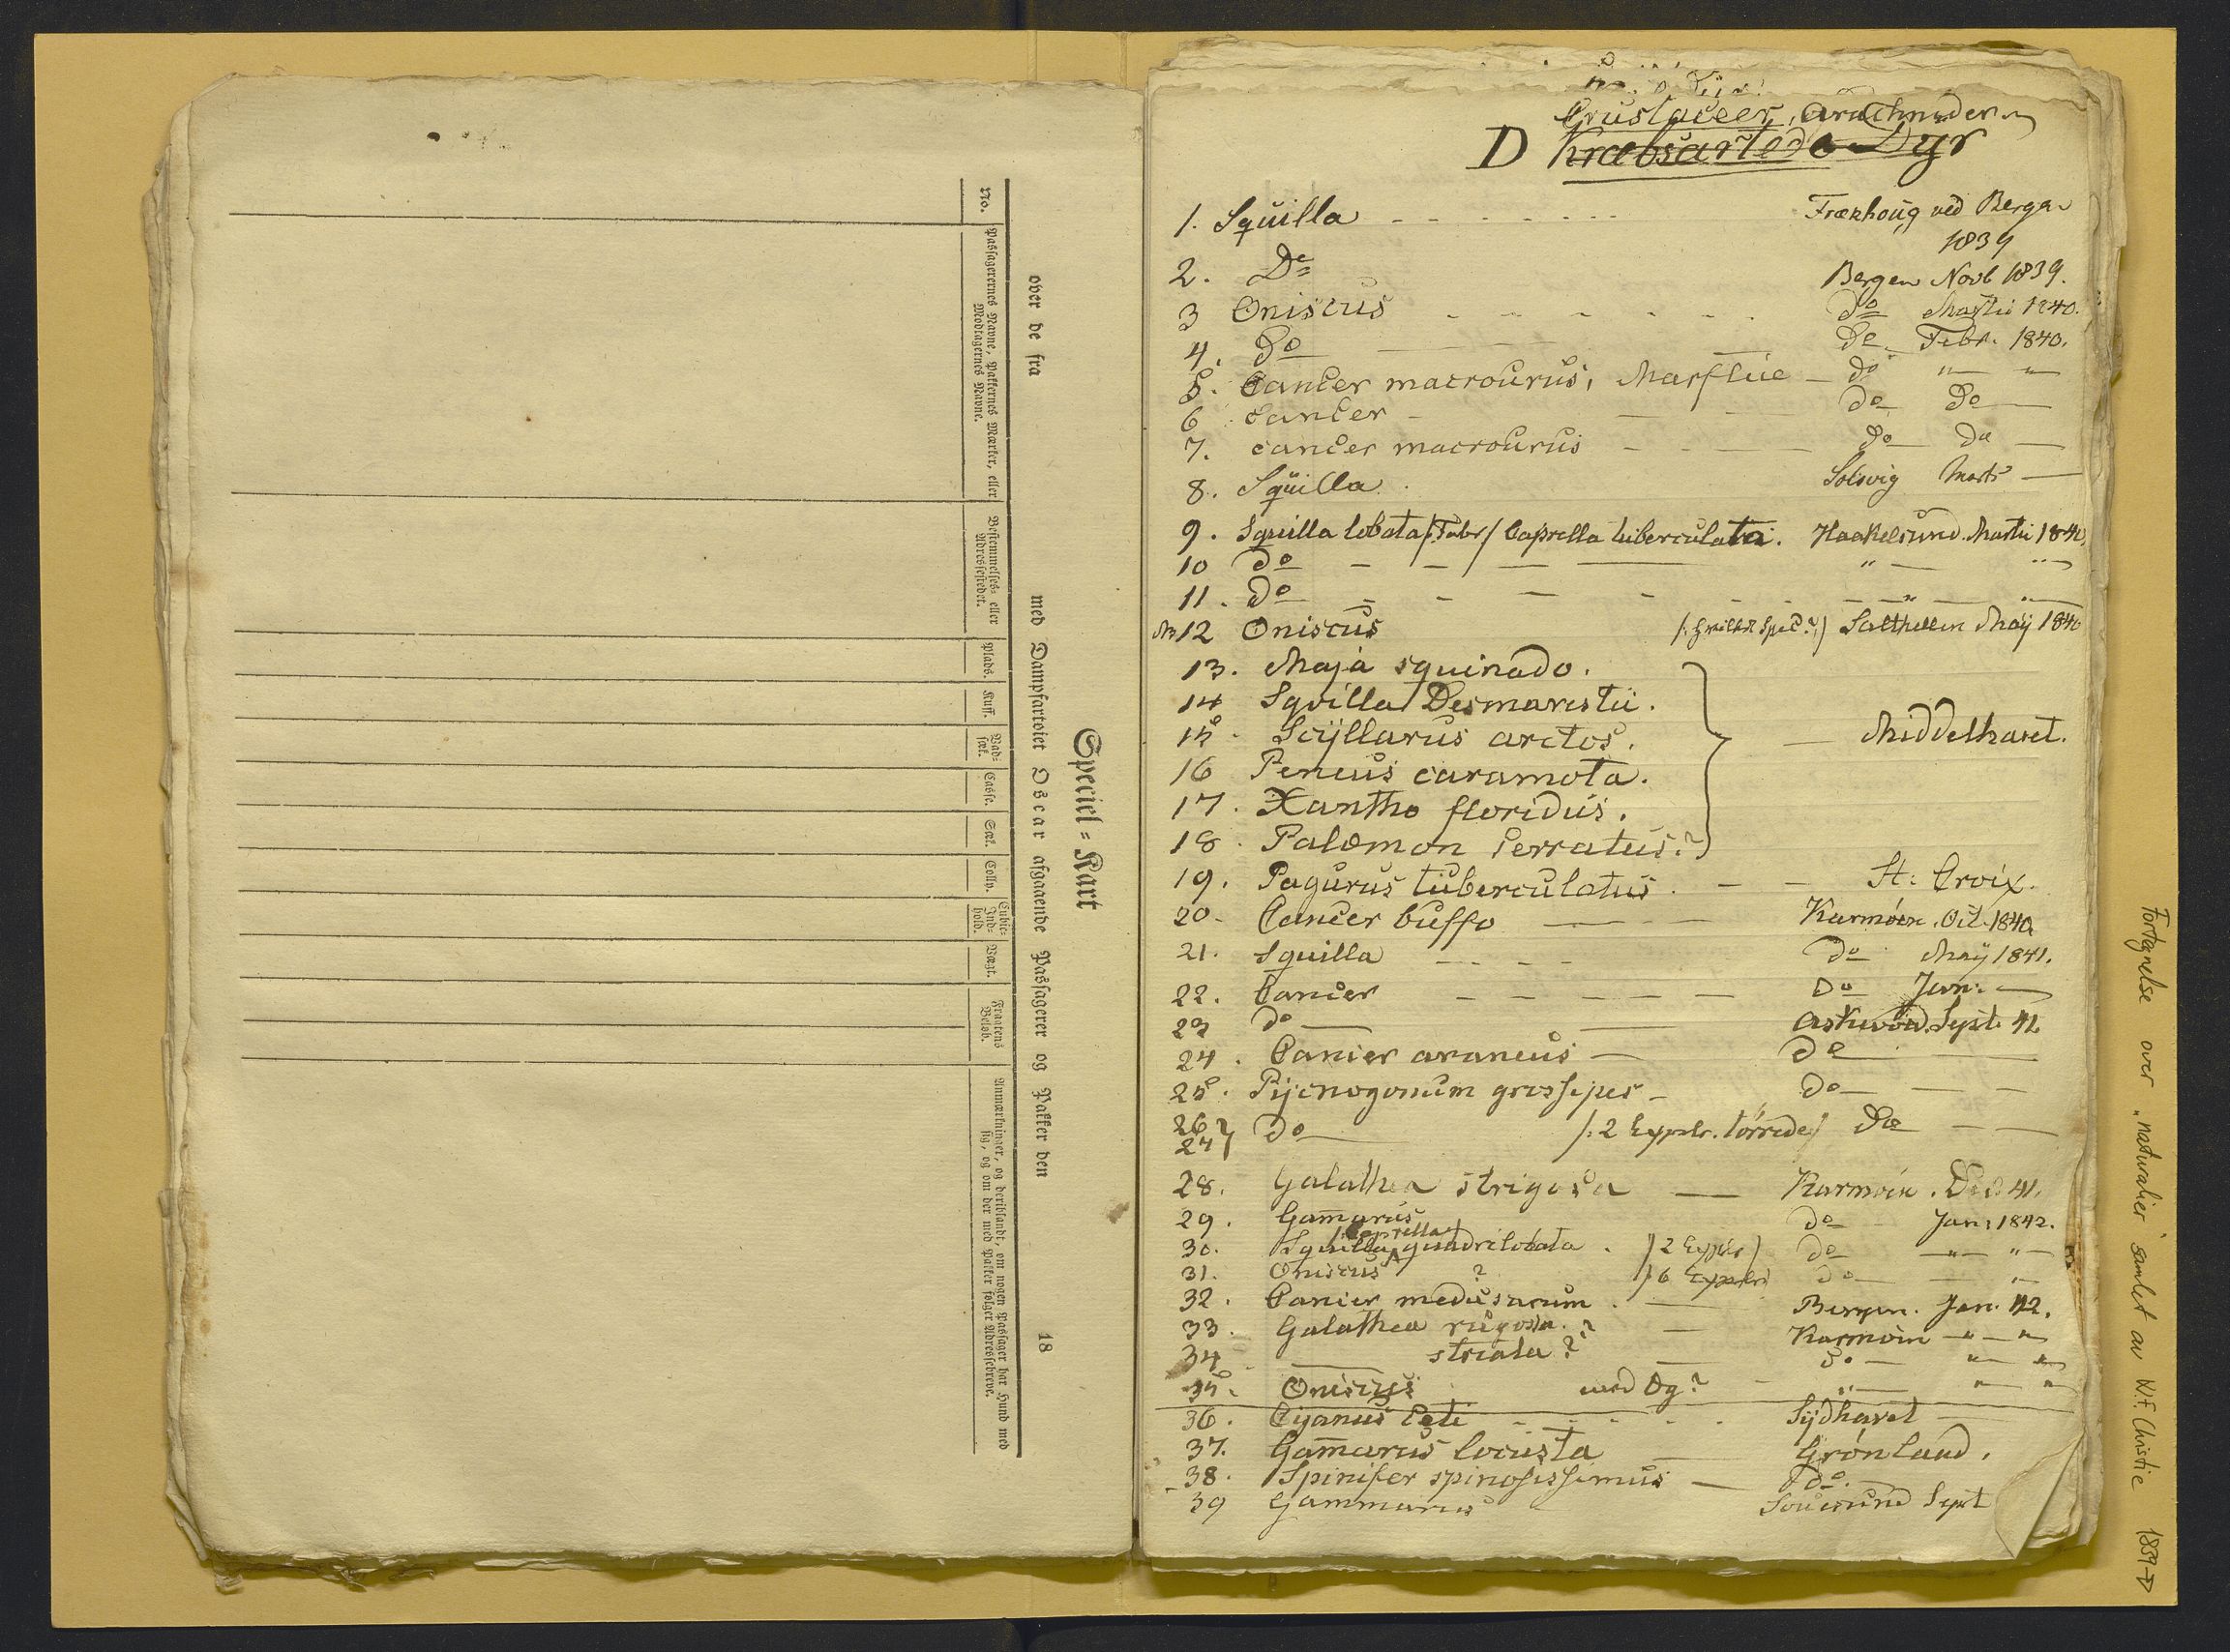 Speciel-Kart
over de fra med Dampfartøiet Oscar afgaaende Passagerer og Pakker den 18
No.
Passagerernes Navne, Pakkernes Mærker, eller Modtagernes Navne.
Bestemmelses- eller Adressestedet.
Plads.
Kuff.
Vad-sæk.
Casse.
Sæk.
Colly.
Cubic-Ind-hold.
Vægt.
Fragtens Beløb.
Anmærkninger, og deriblandt, om nogen Passager har Hund med sig, og om der med Pakker følger Adressebreve.
Crustaceer, Arachnider
D Krebsartede Dyr
1. Squilla - - - - - - - Frækhoug ved Bergen
1839
2. Do Bergen Novb 1839.
3 Oniscus - - - - - - Do Martii 1840.
4. Do Do Febr. 1840.
5. Cancer macrourus, Marflue - Do " "
6 Cancer - - - Do Do
7. Cancer macrourus - - - Do Do
8. Squilla. Solsvig Marts
9. Squilla lobata /:Fabr/ Caprella tuberculata. Haakelsund. Martii 1840.
10 Do - - " "
11. Do - - - "
12 Oniscus Salthellen May 1840
13. Maja squinado.
14 Sqvilla Desmarestii.
15. Scyllarus arctos.
16 Peneus caramota.
17. Xantho floridus.
18. Palæmon serratus?
Middelhavet.
19. Pagurus tuberculatus. - - St: Croix.
20. Cancer buffo Karmöen. Oct. 1840
21. Squilla - - - - Do May 1841.
22. Cancer - - - - - Do Jun:
23 Do Askevold. Sept. 41.
24. Cancer araneus - Do
25. Pycnogonum grossipes - Do
26 27 Do /:2 Expls. törrede/ Do
28. Galathea strigosa Karmöen. Dec: 41.
29. Gam̄arus Do Jan: 1842.
30. Squilla Caprella quadrilobata. /2 Expls/ Do " "
31. Oniscus ? /6 Expls/ Do "
32. Cancer medusarum. Bergen. Jan. 42.
33. Galathea rugosa. ? Karmöen " "
34 striata? Do " "
35. Oniscus med Æg? " " "
36. Cyamus Ceti - - - - - Sydhavet
37. Gam̄arus locusta Grönland.
38. Spinifer spinosissimus Do.
39 Gammarus Sept
Fortegnelse over "naturalier samlet av W.F. Christie 1839-